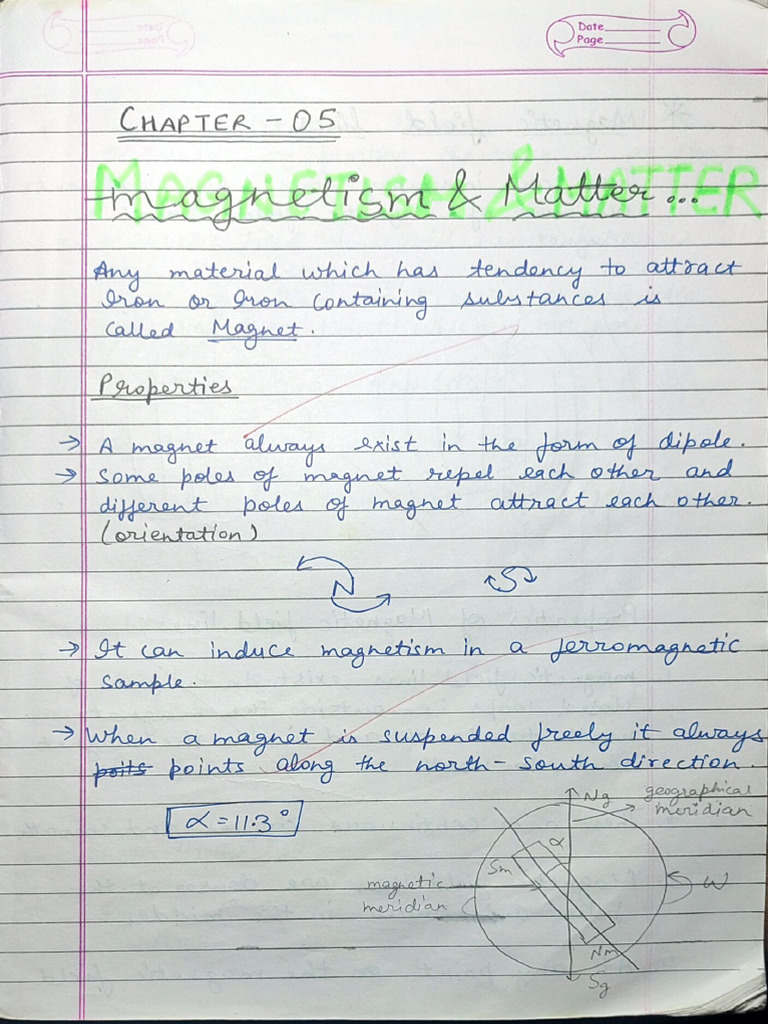 Date
Page
CHAPTER - 05
MAGNETISM & MATTER
magnetism & Matter...
Any material which has tendency to attract
Iron or Iron Containing substances is
called Magnet.
Properties
→ A magnet always exist in the form of dipole.
→ Some poles of magnet repel each other and
different poles of magnet attract each other.
(orientation)
N S
→ It can induce magnetism in a ferromagnetic
sample.
→ When a magnet is suspended freely it always
poits points along the north-south direction.
α = 11.3°
Ng geographical
meridian
α
Sm
magnetic
meridian
W
Nm
Sg